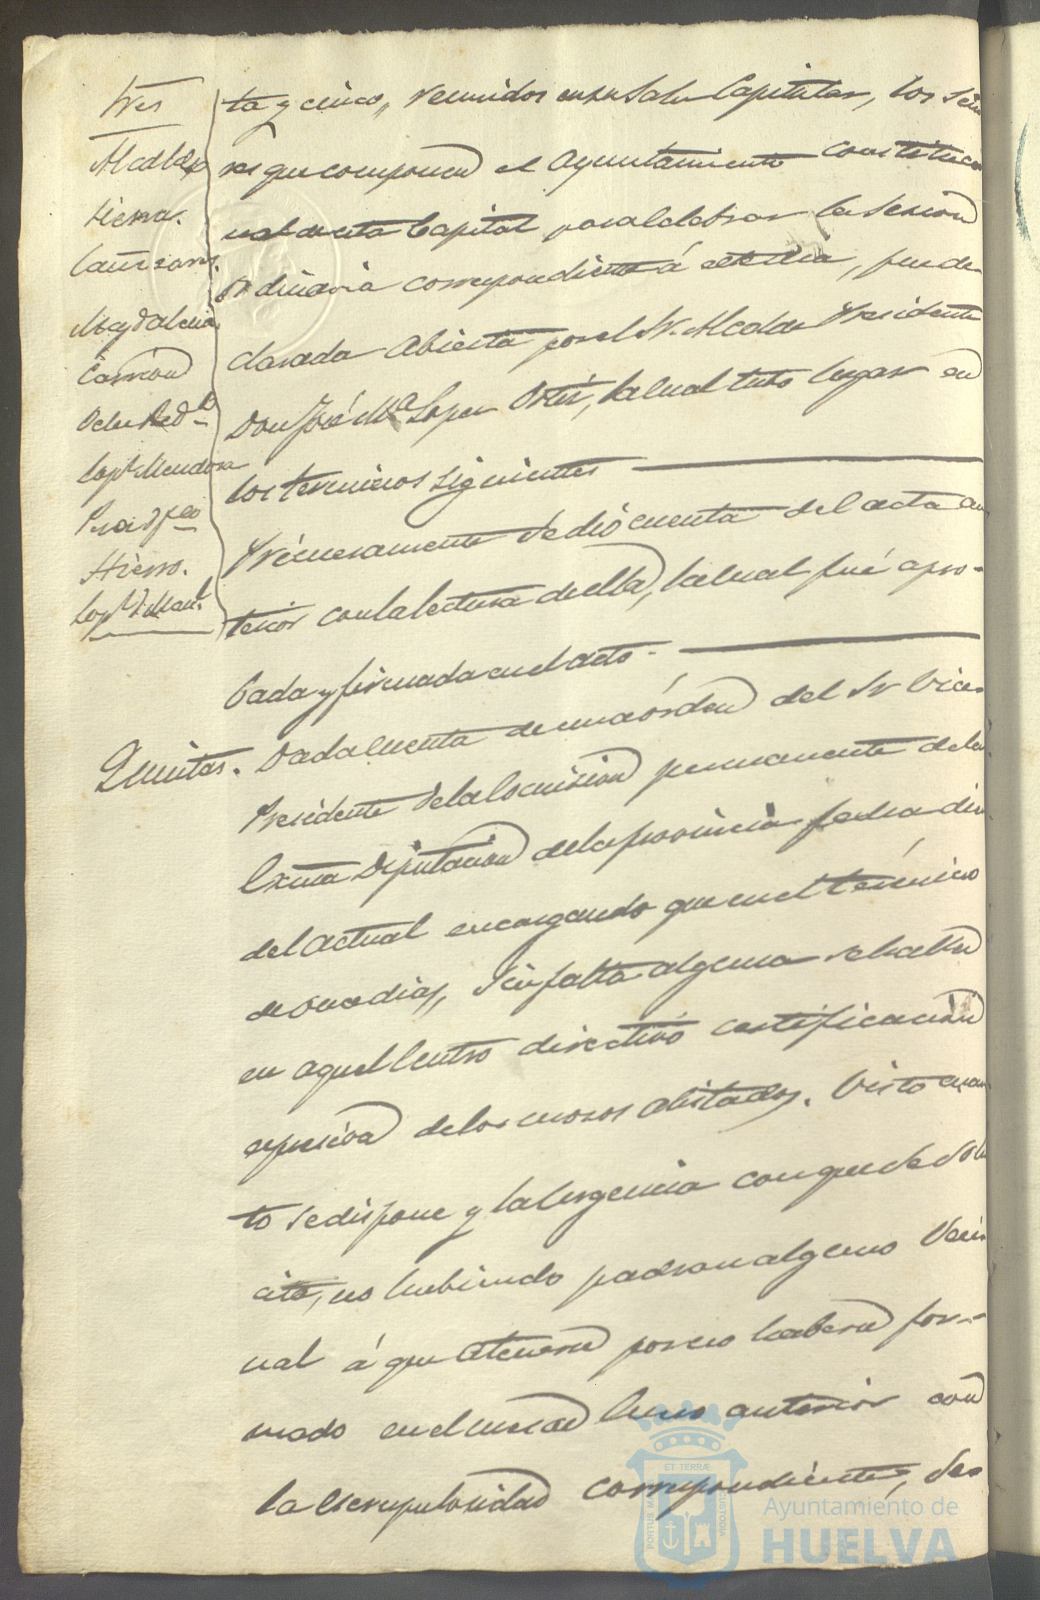 Sres
Alcalde
Sierra.
Magdalena
Carrión
Hierro.
ta y cinco, reunidos en su Sala Capitular, los Seño
res que componen el Ayuntamiento constitucio
nal de esta Capital para celebrar la sesion
ordinaria correspondiente á este dia, fue de-
clarada abierta por el Sr. Alcalde Presidente
Don José Mª Lopez Ortiz, la cual tubo lugar en
los terminos siguientes
Primeramente se dió cuenta del acta an
terior con la lectura de ella, la cual fué apro-
bada y firmada en el acto.
Quintas. Dada cuenta de una órden del Sr Vice-
Presidente de la Comision permanente de la
Excma Diputacion de la provincia fecha
del actual encargando que en el término
de once dias, sin falta alguna se halle
en aquel Centro directivo certificacion
expresiva de los mozos alistados. Visto cuan
to se dispone y la urgencia con que se soli
cita, no habiendo padron alguno Vecin
nal á que atenerse por no haberse for-
mado en el mes de Enero anterior con
la escrupulosidad correspondiente, des
PORTUS MARIS
ET TERRÆ
CUSTODIA
Ayuntamiento de
HUELVA